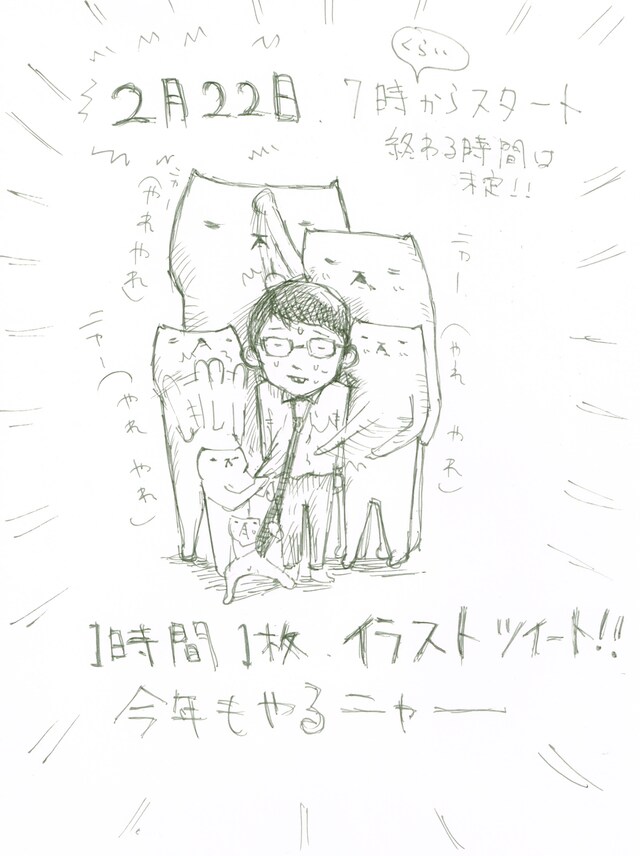 くらい
2月22日.7時からスタート
終わる時間は
未定!!
ニャー(やれやれ)
ニャー(やれ やれ)
ニャー(やれ やれ)
1時間1枚.イラストツイート!!
今年もやるニャー